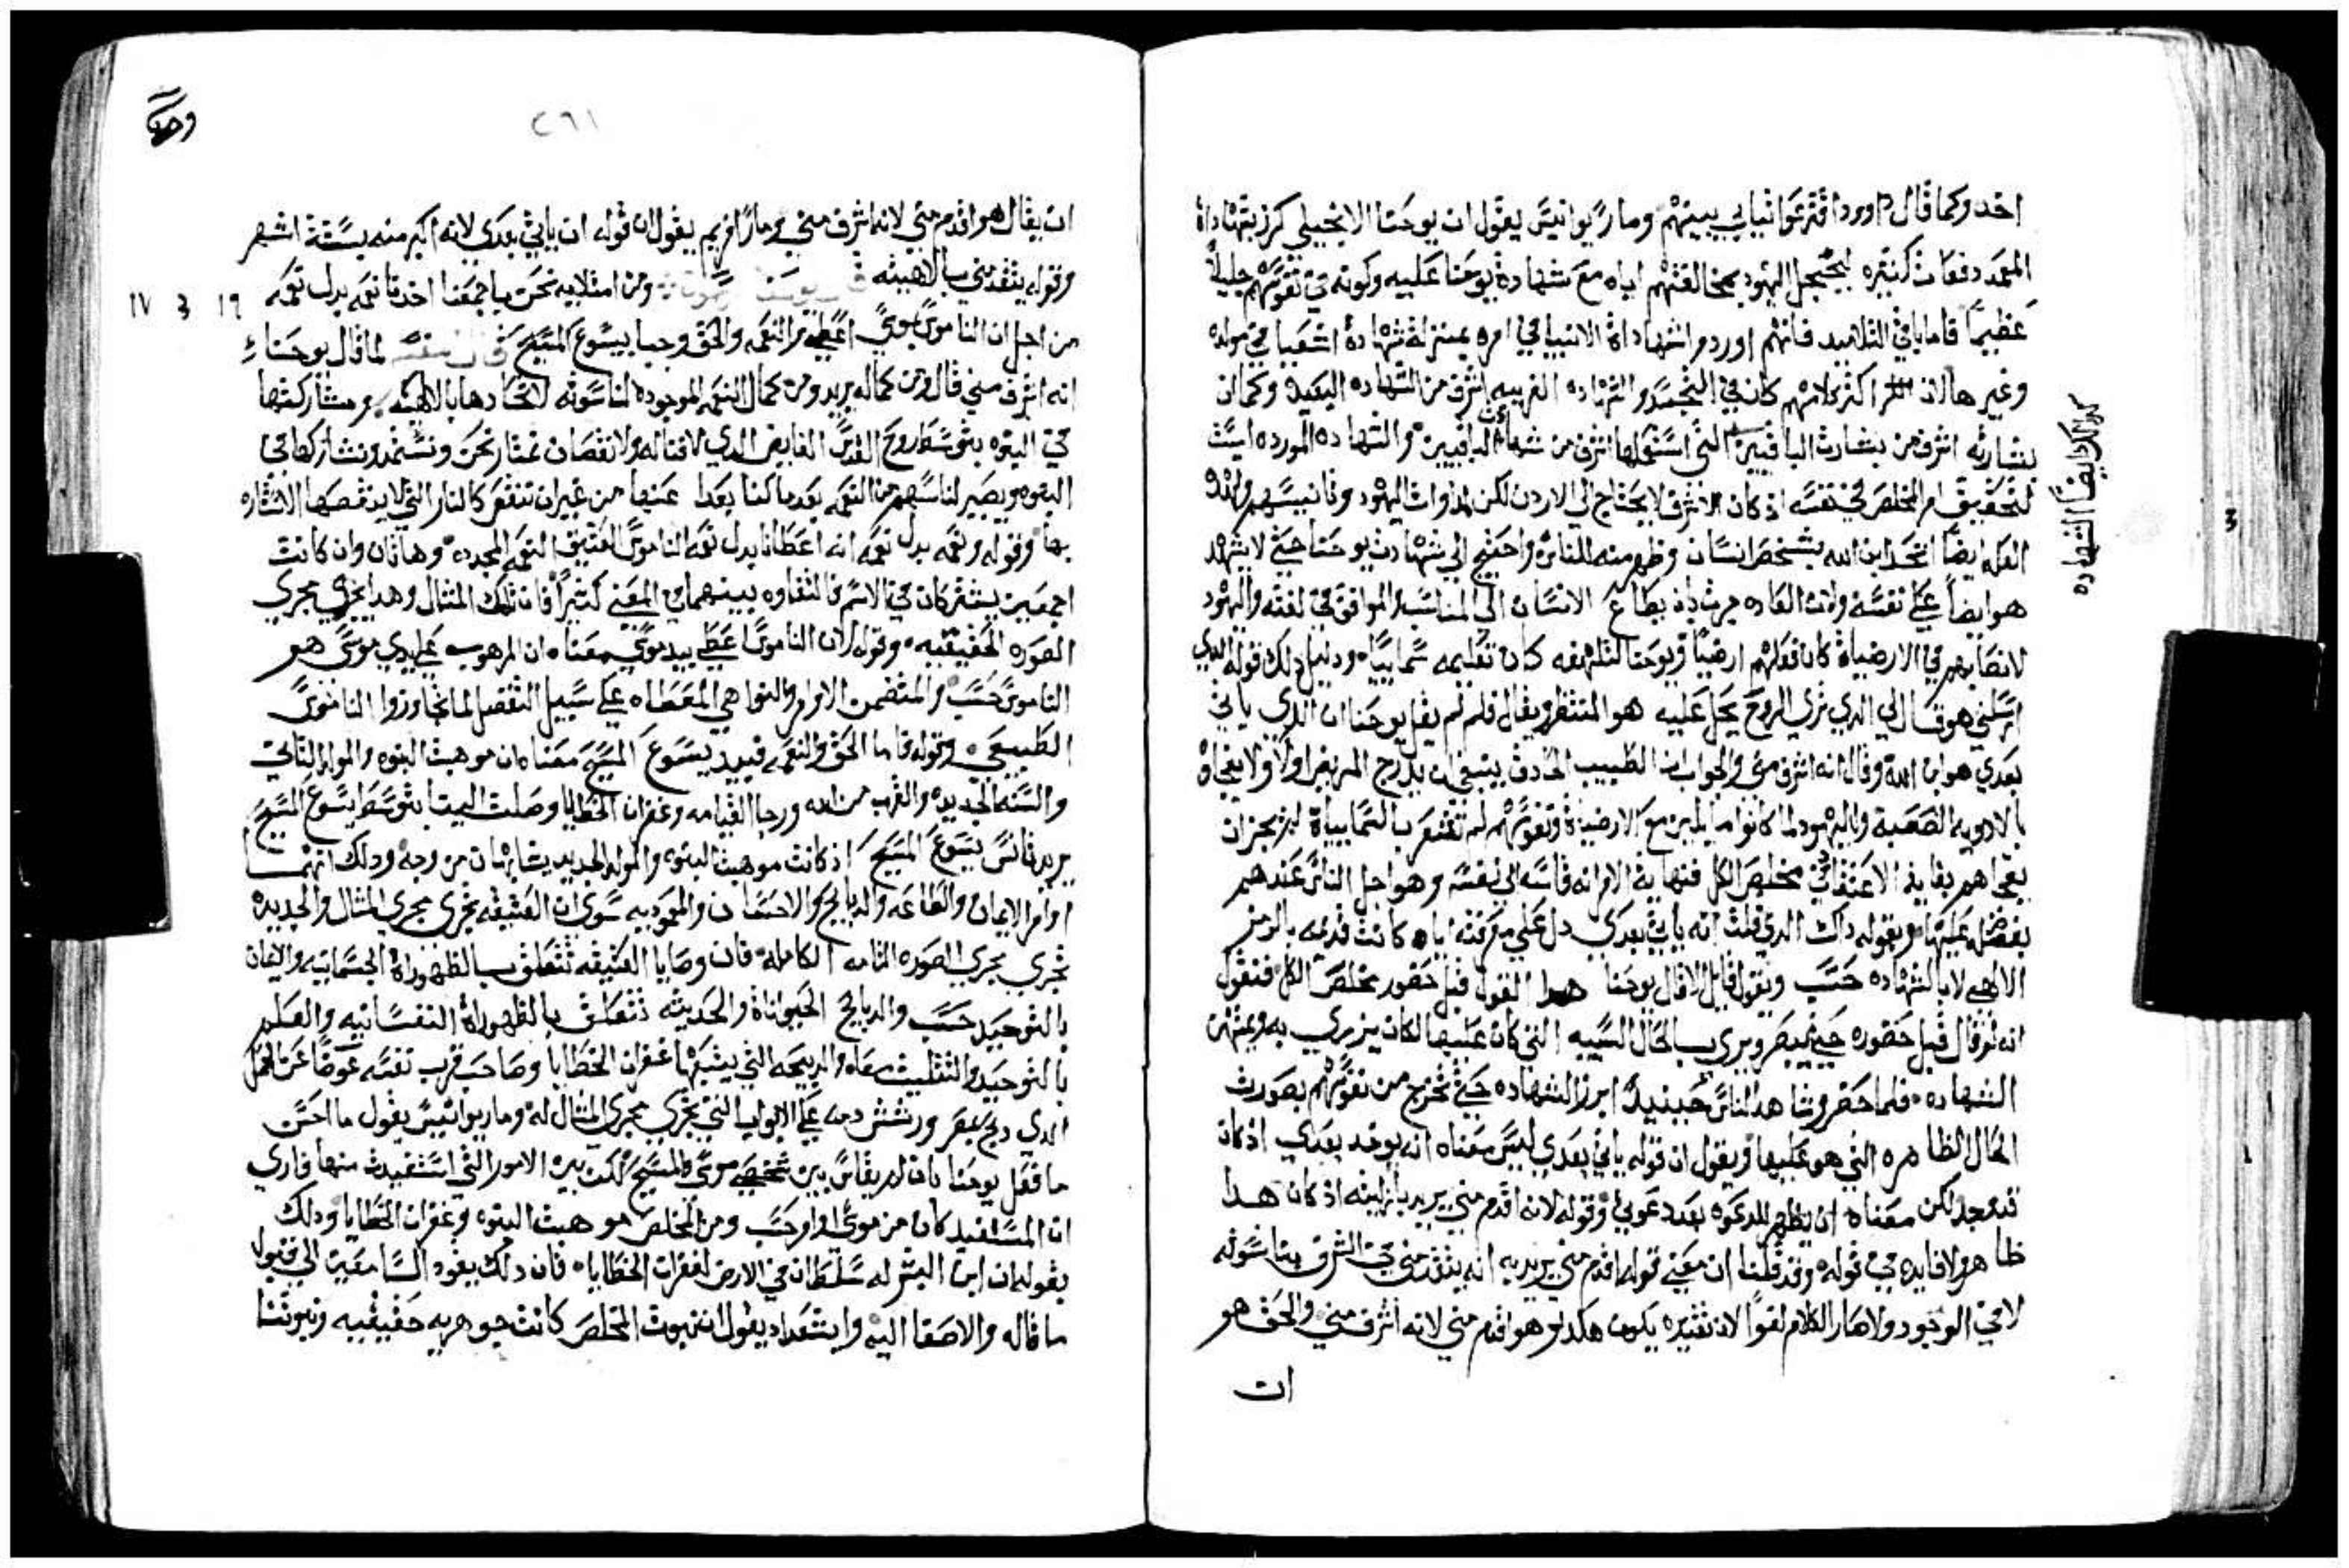 احد وكما قال داوود اقترعوا ثيابي بينهم وماريوانيس يقول ان يوحنا الانجيلي كرز بشهاداة
المعمد دفعات كثيره ليخجل اليهود بمخالفتهم اياه مع شهادة يوحنا عليه وكونه في نفوسهم جليلاً
عظيماً فاما باقي التلاميد فانهم اوردوا شهاداة الانبيا في امره بمنزلة شهادة اشعيا في مولده
وغير هالان اكثر كلامهم كان في التجسد والشهاده القريبه اشرف من الشهاده البعيده وكما ان
بشارته اشرف من بشارت الباقيين التي استعملها اشرف من شهادة الباقيين والشهاده المورده ليست
لتحقيق امر المخلص في نفسه اذ كان الاشرف لا يحتاج الي الادون لكن لمداوات اليهود وتانيسهم ولهذه
العله ايضاً اتحد ابن الله بشخص انسان وظهر منه للناس واحتج الي شهادت يوحنا حتي لا يشهد
هو ايضاً علي نفسه ولان العاده جرت بان يطاع الانسان الي المناسب والموافق في لغته واليهود
لانصبابهم في الارضياة كانا فعلهم ارضيا ويوحنا لتالهه كان تعليمه سماييا ودليل دلك قوله الدي
ارسلني هو قال لي الدي تري الروح يحل عليه هو المنتظر ويقال فلم لم يقل يوحنا ان الدي ياتي
بعدي هو ابن الله وقال انه اشرف مني والجواب ان الطبيب الحادق ينبغي ان يدرج المريض اولا ولا يفجاه
بالادويه الصعبة واليهود لما كانوا مايلين مع الارضياة ونفوسهم لم تشعر بالسماييات لم يجز ان
يفجاهم بغاية الاعتقاد في مخلص الكل فنهاية الامر انه قاسه الي نفسه وهو اجل الناس عندهم
بفضله عليها وبقوله داك الدي قلت انه ياتي بعدي دل علي معرفته اياه كانت قديمه بالرمز
الالاهي لا بالشهاده حسب ويقول قايل لا قال يوحنا هدا القول قبل حضور مخلص الكل فنقول
انه لو قال قبل حضوره حتي يبصر ويري بالحال السييه التي كان عليها لكان يزري به ويمتهن
الشهاده فلما حضر وشاهد الناس حينيد ابرز الشهاده حتي تخرج من نفوسهم بصورت
الحال الظاهره التي هو عليها ويقول ان قوله ياتي بعدي ليس معناه انه يوجد بعدي اذ كان
قد وجد لكن معناه ان يظهر للدعوه بعد دعوتي وقوله لانه اقدم مني يريد بازليته اذ كان هدا
ظاهر ولا فايده في قوله وقد قلنا ان معني قوله اقدم مني يريد به انه يتقدمني في الشرف بناسوته
لا في الوجود ولا صار الكلام لغوا لان تقديره يكون هكدي هو اقدم مني لانه اشرف مني والحق هو
ان
كدا لكر ايضاً الشهاده
3
1
٢٦١
ان يقال هو اقدم مني لانه اشرف مني ومار افريم يقول ان قوله ان ياتي بعدي لانه اكبر منه بستة اشهر
وقوله يتقدمني بالاهيته ومن امتلايه نحن باجمعنا اخدنا نعمه بدل نعمه
١٦ 3 ١٧
من اجل ان الناموس بموسي اعطي والنعمه والحق وجبا بيسوع المسيح قال المفسر لما قال يوحنا
انه اشرف مني قال ومن كماله يريد ومن كمال النعمه الموجوده لناسوته لاتحادها بالالاهيته ومشاركتها
في البنوه بتوسط روح القدس الفايض الدي لا فنا له ولا نقصان نمتار نحن ونستمد ونشاركها في
البنوه ويصير لنا سهم من النعمه بعد ما كنا بعدا عنها من غير ان تنتقص كالنار التي لا ينقصها الاستناره
بها وقوله ونعمه بدل نعمه انه اعطانا بدل نعمة الناموس العتيق النعمه المجدده وهاتان وان كانت
اجمعين يشتركان في الاسم فالتفاوه بينهما في المعني كثيراً فان تلك المثال وهدا يجري مجري
الصوره الحقيقيه وقوله ان الناموس اعطي بيد موسي معناه ان الموهوب علي يدي موسي هو
الناموس حسب والمتضمن الاوامر والنواهي المعطاه علي سبيل التفضل لما تجاوزوا الناموس
الطبيعي وقوله فاما الحق والنعمه فبيد يسوع المسيح معناه ان موهبت البنوه والمولد التاني
والسنه الجديده والقرب من الله ورجا القيامه وغفران الخطايا وصلت الينا بتوسط يسوع المسيح
يريد فانس يسوع المسيح اذ كانت موهبت البنوه والمولد الجديد يتشابهان من وجه ودلك انهما
اوامر الايمان والطاعه والدبايح والاحتفان والمعموديه سوي ان العتيقه تجري مجري المثال والجديده
تجري مجري الصوره التامه الكامله فان وصايا العتيقه تتعلق بالظهوراة الجسمانيه والايمان
بالتوحيد حسب والدبايح الحيواناة والحديثه تتعلق بالظهوراة النفسانيه والعلم
بالتوحيد والتتليث معاه والدبيحه التي يتبعها غفران الخطايا وصاحب قرب نفسه عوضا عن الحمل
الدي دبح بمصر ورشش دمه علي الابواب التي تجري مجري المثال له وماريوانيس يقول ما احسن
ما فعل يوحنا بان لم يقاس بين شخصي موسي والمسيح لكن بين الامور التي استفيدت منها فاري
ان المستفيد كان من موسي اوامر حسب ومن المخلص موهبت البنوه وغفران الخطايا ودلك
بقوله ان ابن البشر له سلطان في الارض لغفران الخطايا فان دلك يقود السامعين الي قبول
ما قاله والاصغا اليه وابتتعداد يقول ان بنوت المخلص كانت جوهريه حقيقيه وبنوتنا